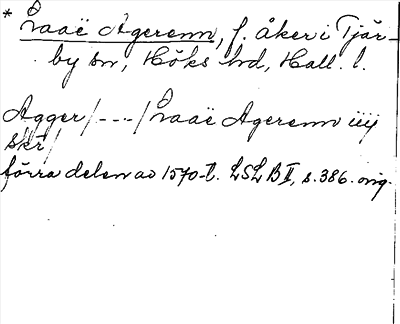 * Èaaë Agerenn, f. åker i Tjär-
by sn, Höks hd, Hall. l.
Agger /---/ Èaaë Agerenn iiij
skr /
förra delen av 1570-t. LSLB II, s. 386. orig.